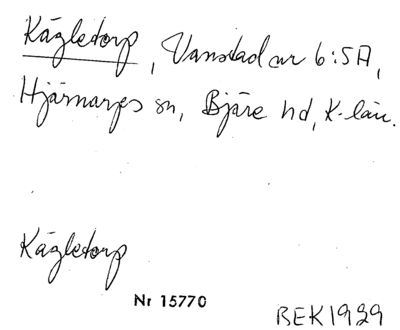 Kägletorp, Vanstad nr 6:5A,
Hjärnarps sn, Bjäre hd, K-län.
Kägletorp
Nr 15770
BEK1929